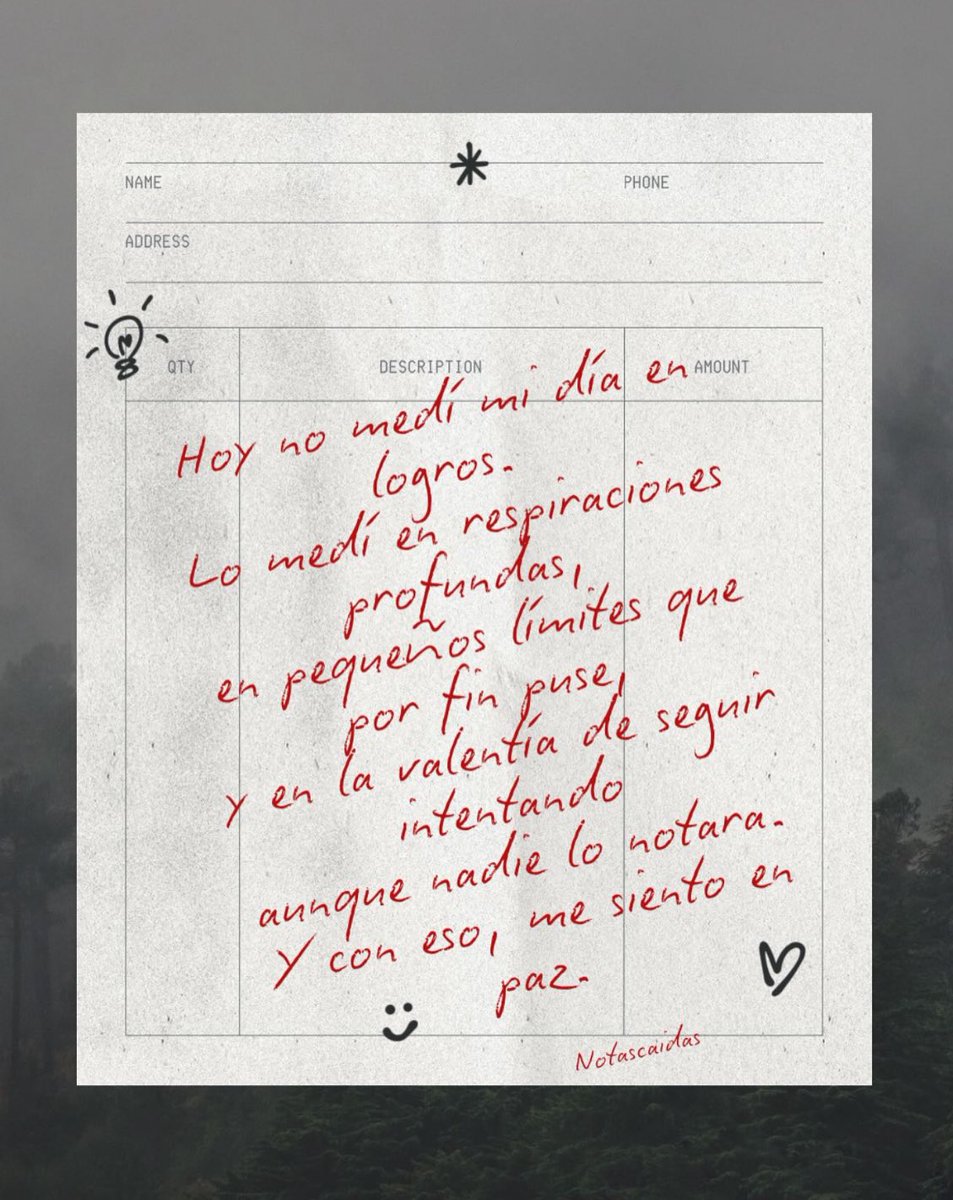 NAME PHONE
ADDRESS
QTY DESCRIPTION AMOUNT
Hoy no medí mi día en
logros.
Lo medí en respiraciones
profundas,
en pequeños límites que
por fin puse,
y en la valentía de seguir
intentando
aunque nadie lo notara.
Y con eso, me siento en
paz.
Notascaidas